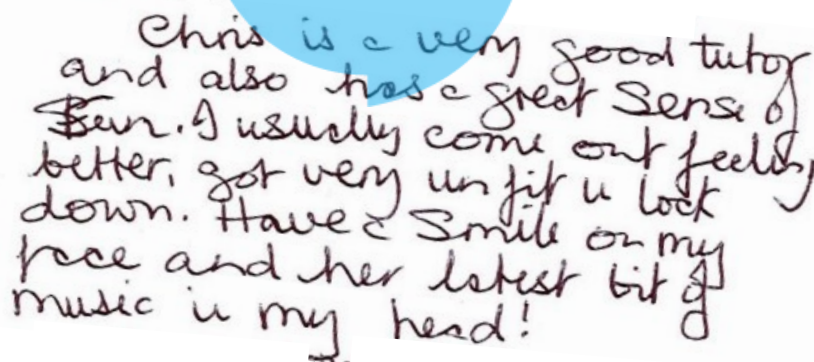 Chris is a very good tutor
and also has a great sense of
Fun. I usually come out feeling
better, got very unfit in lock
down. Have a smile on my
face and her latest bit of
music in my head!